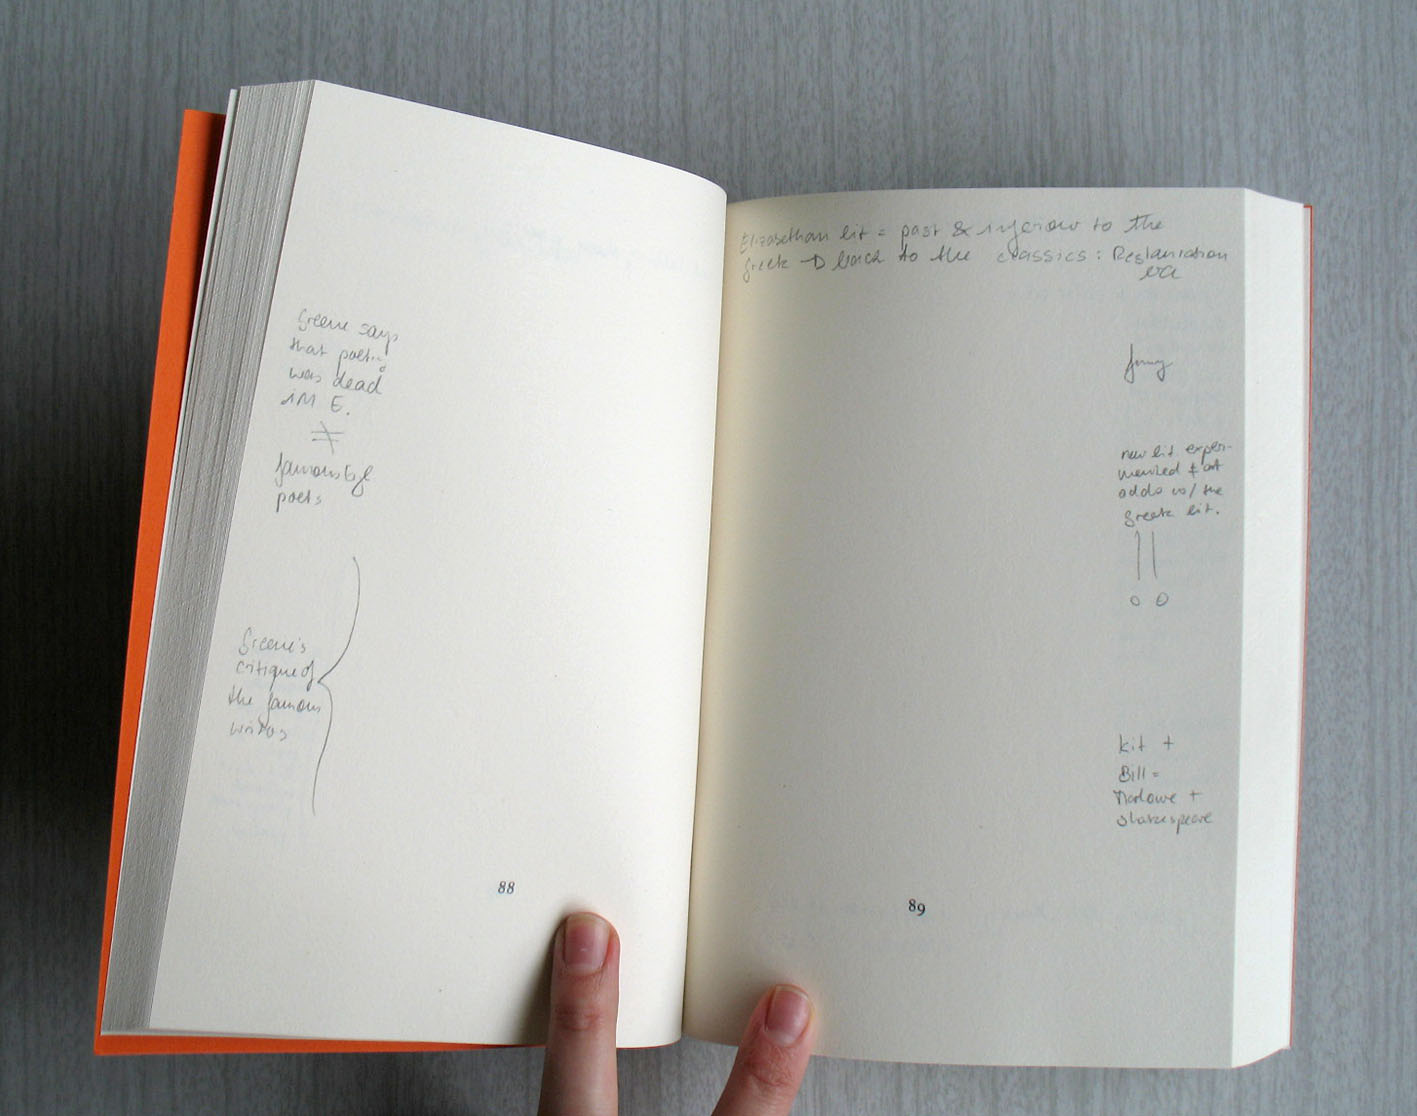 Greene says
that poetry
was dead
in E.
≠
famous Egl
poets
Greene's
critique of
the famous
writers
88
Elizabethan lit = past & inferiour to the
Greek → back to the classics: Restauration
era
funny
new lit experi-
mented & at
odds w/ the
greek lit.
!!
kit +
Bill =
Marlowe +
Shakespeare
89